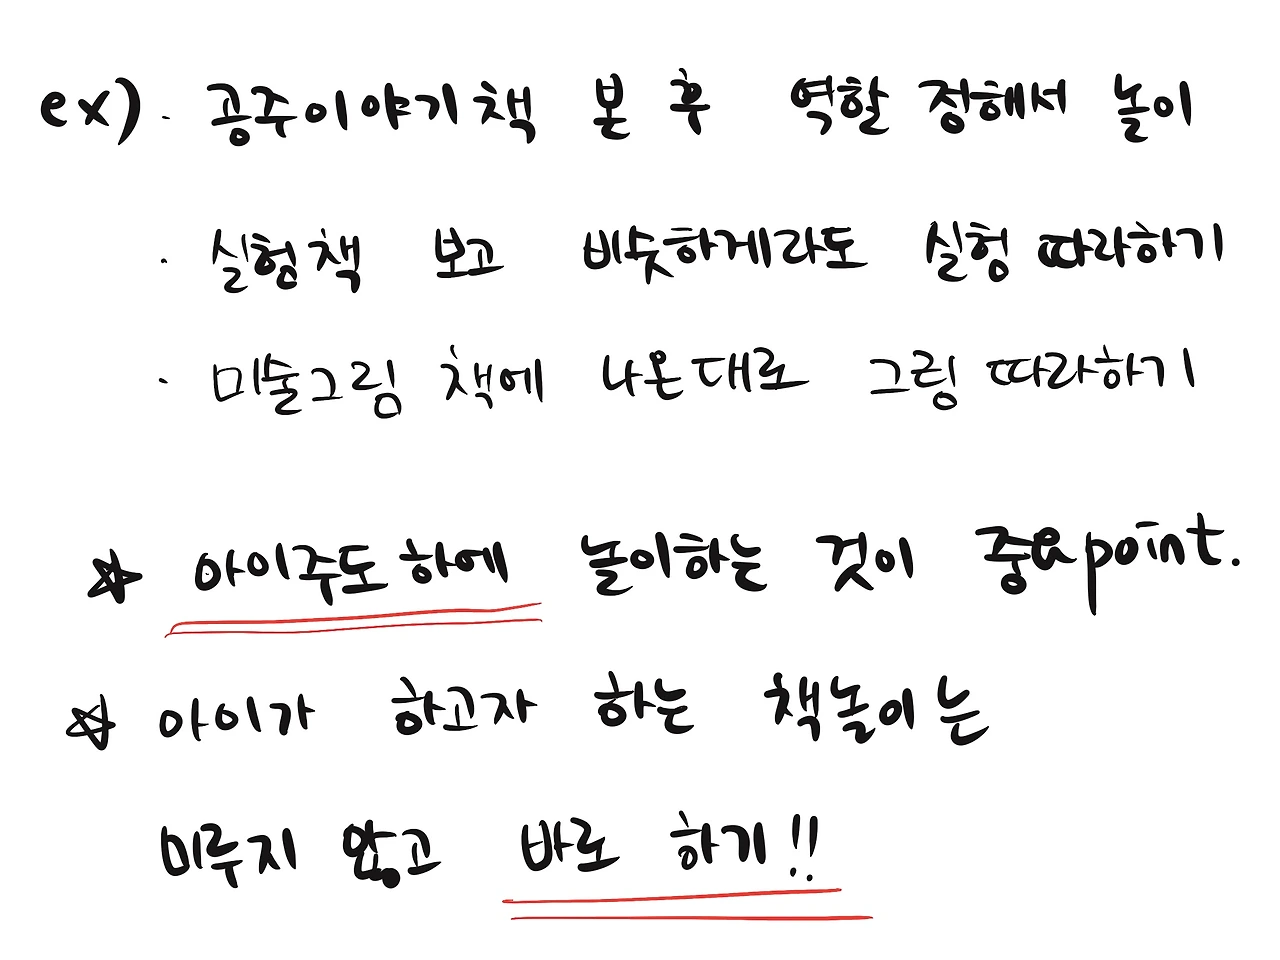 ex). 공주이야기책 본 후 역할 정해서 놀이
· 실험책 보고 비슷하게라도 실험 따라하기
· 미술그림 책에 나온대로 그림 따라하기
☆ 아이주도하에 놀이하는 것이 중요point.
☆ 아이가 하고자 하는 책놀이는
미루지 않고 바로 하기!!